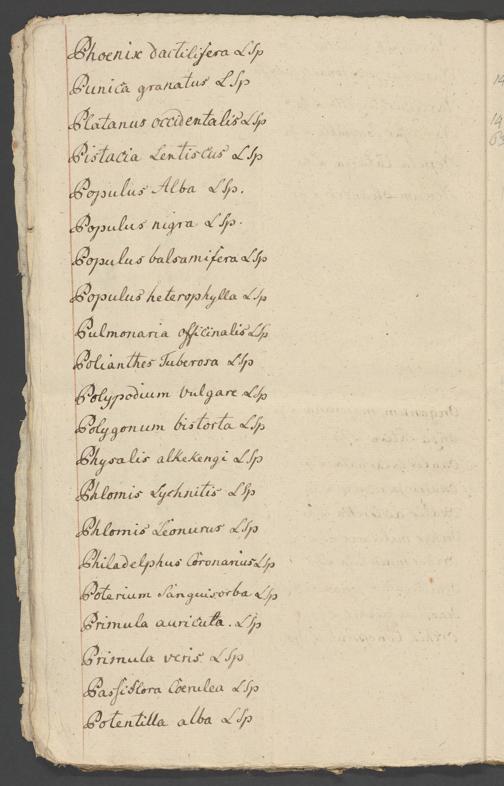 Phoenix dactilifera LSp
Punica granatus LSp
Platanus occidentalis LSp
Pistacia Lentiscus LSp
Populus Alba LSp.
Populus nigra LSp.
Populus balsamifera LSp
Populus heterophylla LSp
Pulmonaria officinalis LSp
Polianthes Tuberosa LSp
Polypodium vulgare LSp
Polygonum bistorta LSp
Physalis alkekengi LSp
Phlomis Lychnitis LSp
Phlomis Leonurus LSp
Philadelphus Coronarius LSp
Poterium Sanguisorba LSp
Primula auricula. LSp
Primula veris LSp
Passiflora Coerulea LSp
Potentilla alba LSp